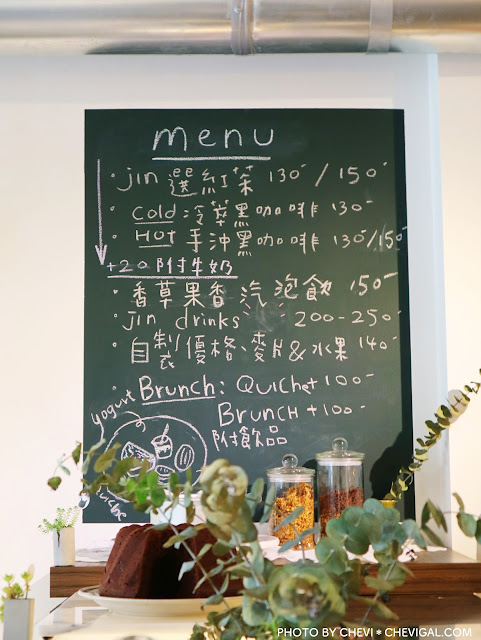 menu
· jin ee 選紅茶 130- / 150-
· Cold 冷萃黑咖啡 130-
· HOT 手沖黑咖啡 130-/150-
+20 附牛奶
· 香草果香汽泡飲 150-
· jin drinks 200-250-
· 自製優格、麥片&水果 140-
· Brunch: Quiche+100-
Brunch +100-
附飲品
yogurt
quiche
PHOTO BY CHEVI＊CHEVIGAL.COM